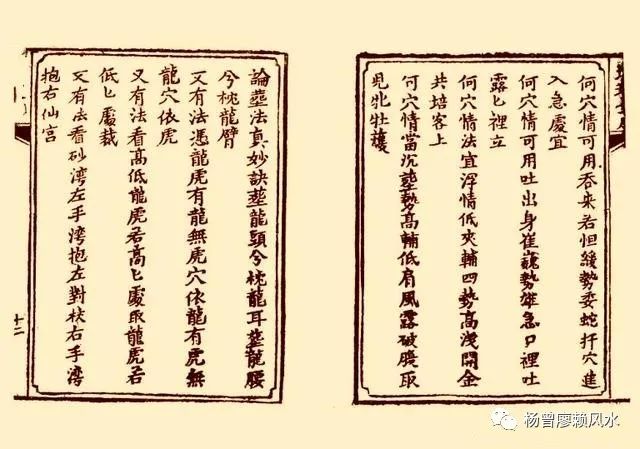 何穴情可用吞来若怛緩勢委蛇扦穴進
入急處宜
何穴情可用吐出身崔巍勢雄急口裡吐
露匕裡立
何穴情法宜浮情低夾輔四勢高淺開金
共培客上
何穴情當沉塟勢高輔低肩風露破腰取
見牝牡
論塟法真妙訣塟龍頭兮枕龍耳塟龍腰
兮枕龍臂
又有法憑龍虎有龍無虎穴依龍有虎無
龍穴依虎
又有法看高低龍虎若高匕處取龍虎若
低匕處裁
又有法看砂湾左手湾抱左對校右手湾
抱右仙宫
十二
杨曾廖赖风水